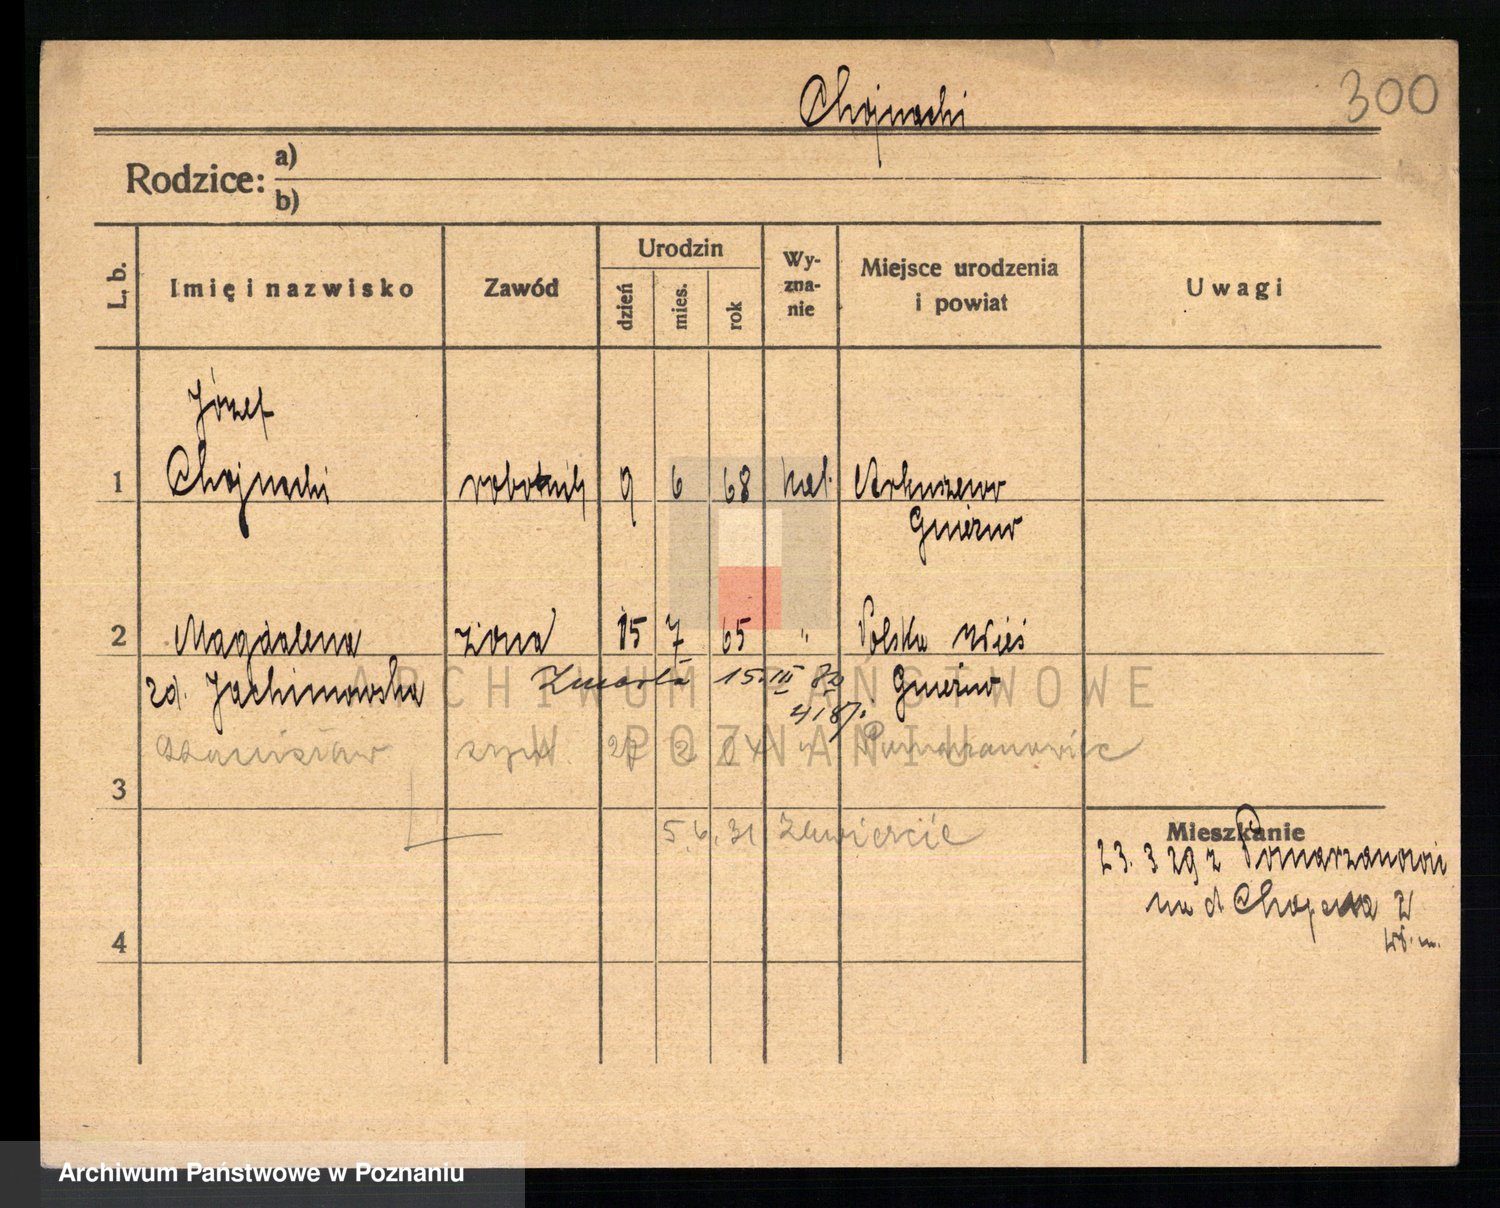 Chojnacki
300
Rodzice: a)
b)
L. b. Imię i nazwisko Zawód Urodzin dzień mies. rok Wyznanie Miejsce urodzenia i powiat Uwagi
Józef
1 Chojnacki robotnik 9 6 68 kat. Arkuszewo
Gniezno
2 Magdalena żona 15 7 65 " Polska Wieś
zd. Jachimowska Zmarła 15. III Gniezno
41 87
Stanisław syn 2 04 " Pomarzanowice
3
5.6.31 Zawiercie
Mieszkanie
23. 3 29 z Pomarzanowic
na d
4
ARCHIWUM PAŃSTWOWE
W POZNANIU
Archiwum Państwowe w Poznaniu